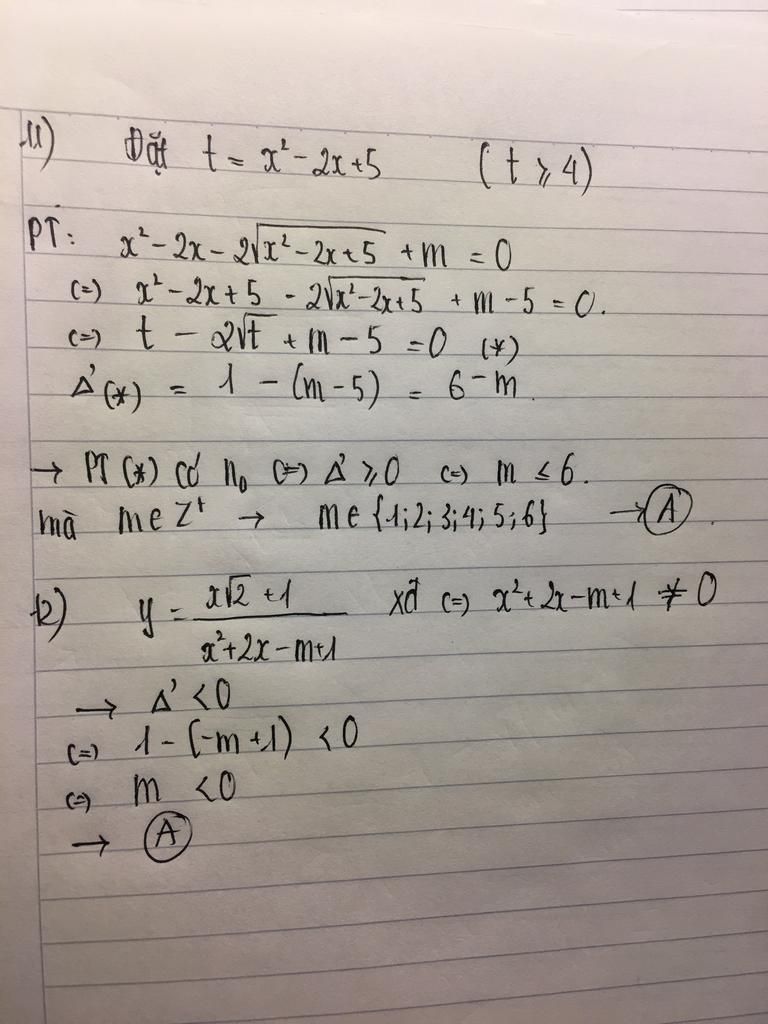 11) Đặt t = x² - 2x + 5 (t ⩾ 4)
PT: x² - 2x - 2√(x² - 2x + 5) + m = 0
(=) x² - 2x + 5 - 2√(x² - 2x + 5) + m - 5 = 0.
(=) t - 2√t + m - 5 = 0 (*)
Δ'(*) = 1 - (m - 5) = 6 - m.
→ PT (*) có n₀ (=) Δ' ⩾ 0 (=) m ≤ 6.
mà m ∈ Z⁺ → m ∈ {1; 2; 3; 4; 5; 6} → Ⓐ.
12) y = (x√2 + 1)/(x² + 2x - m + 1) xđ (=) x² + 2x - m + 1 ≠ 0
→ Δ' < 0
(=) 1 - (-m + 1) < 0
(=) m < 0
→ Ⓐ